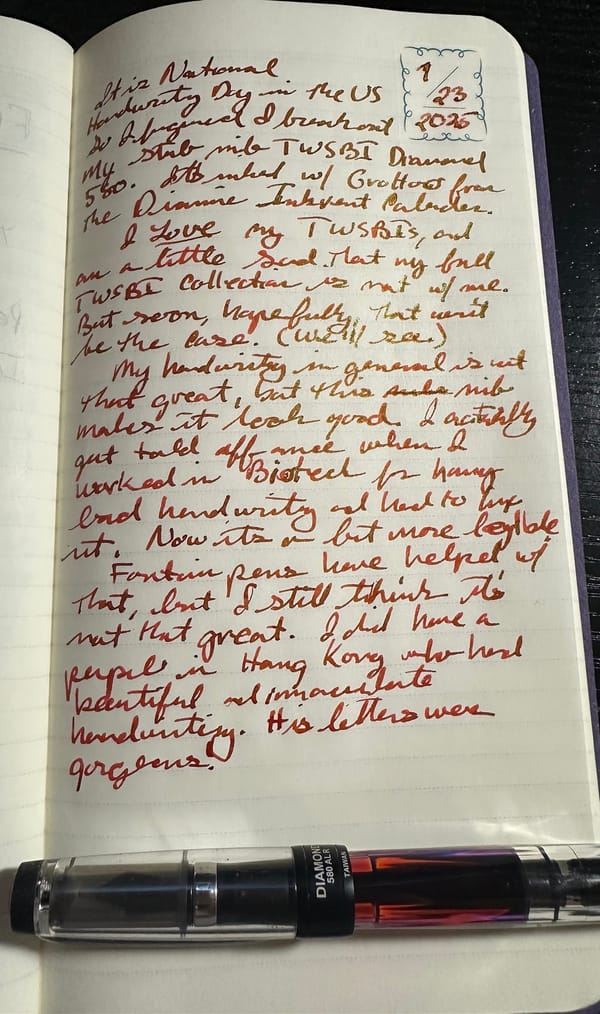 1/23
2025
It is National
Handwrity Day in the US
So I figured I break out
My stub nib TWSBI Diamond
580. It's inked w/ Grotto from
the Diamine Inkvent Calendar.
I Love my TWSBIs, and
am a little sad that my full
TWSBI Collection is not w/ me.
But soon, hopefully, that won't
be the case. (We'll see.)
My handwrity in general is not
that great, but this nib
makes it look good. I actually
got told off once when I
worked in Biotech for having
bad handwrity and had to fix
it. Now its a bit more legible
Fountain pens have helped w/
that, but I still think it's
not that great. I did have a
pupil in Hong Kong who had
beautiful and immaculate
handwriting. His letters were
gorgeous.
DIAMOND
580 ALR
TAIWAN